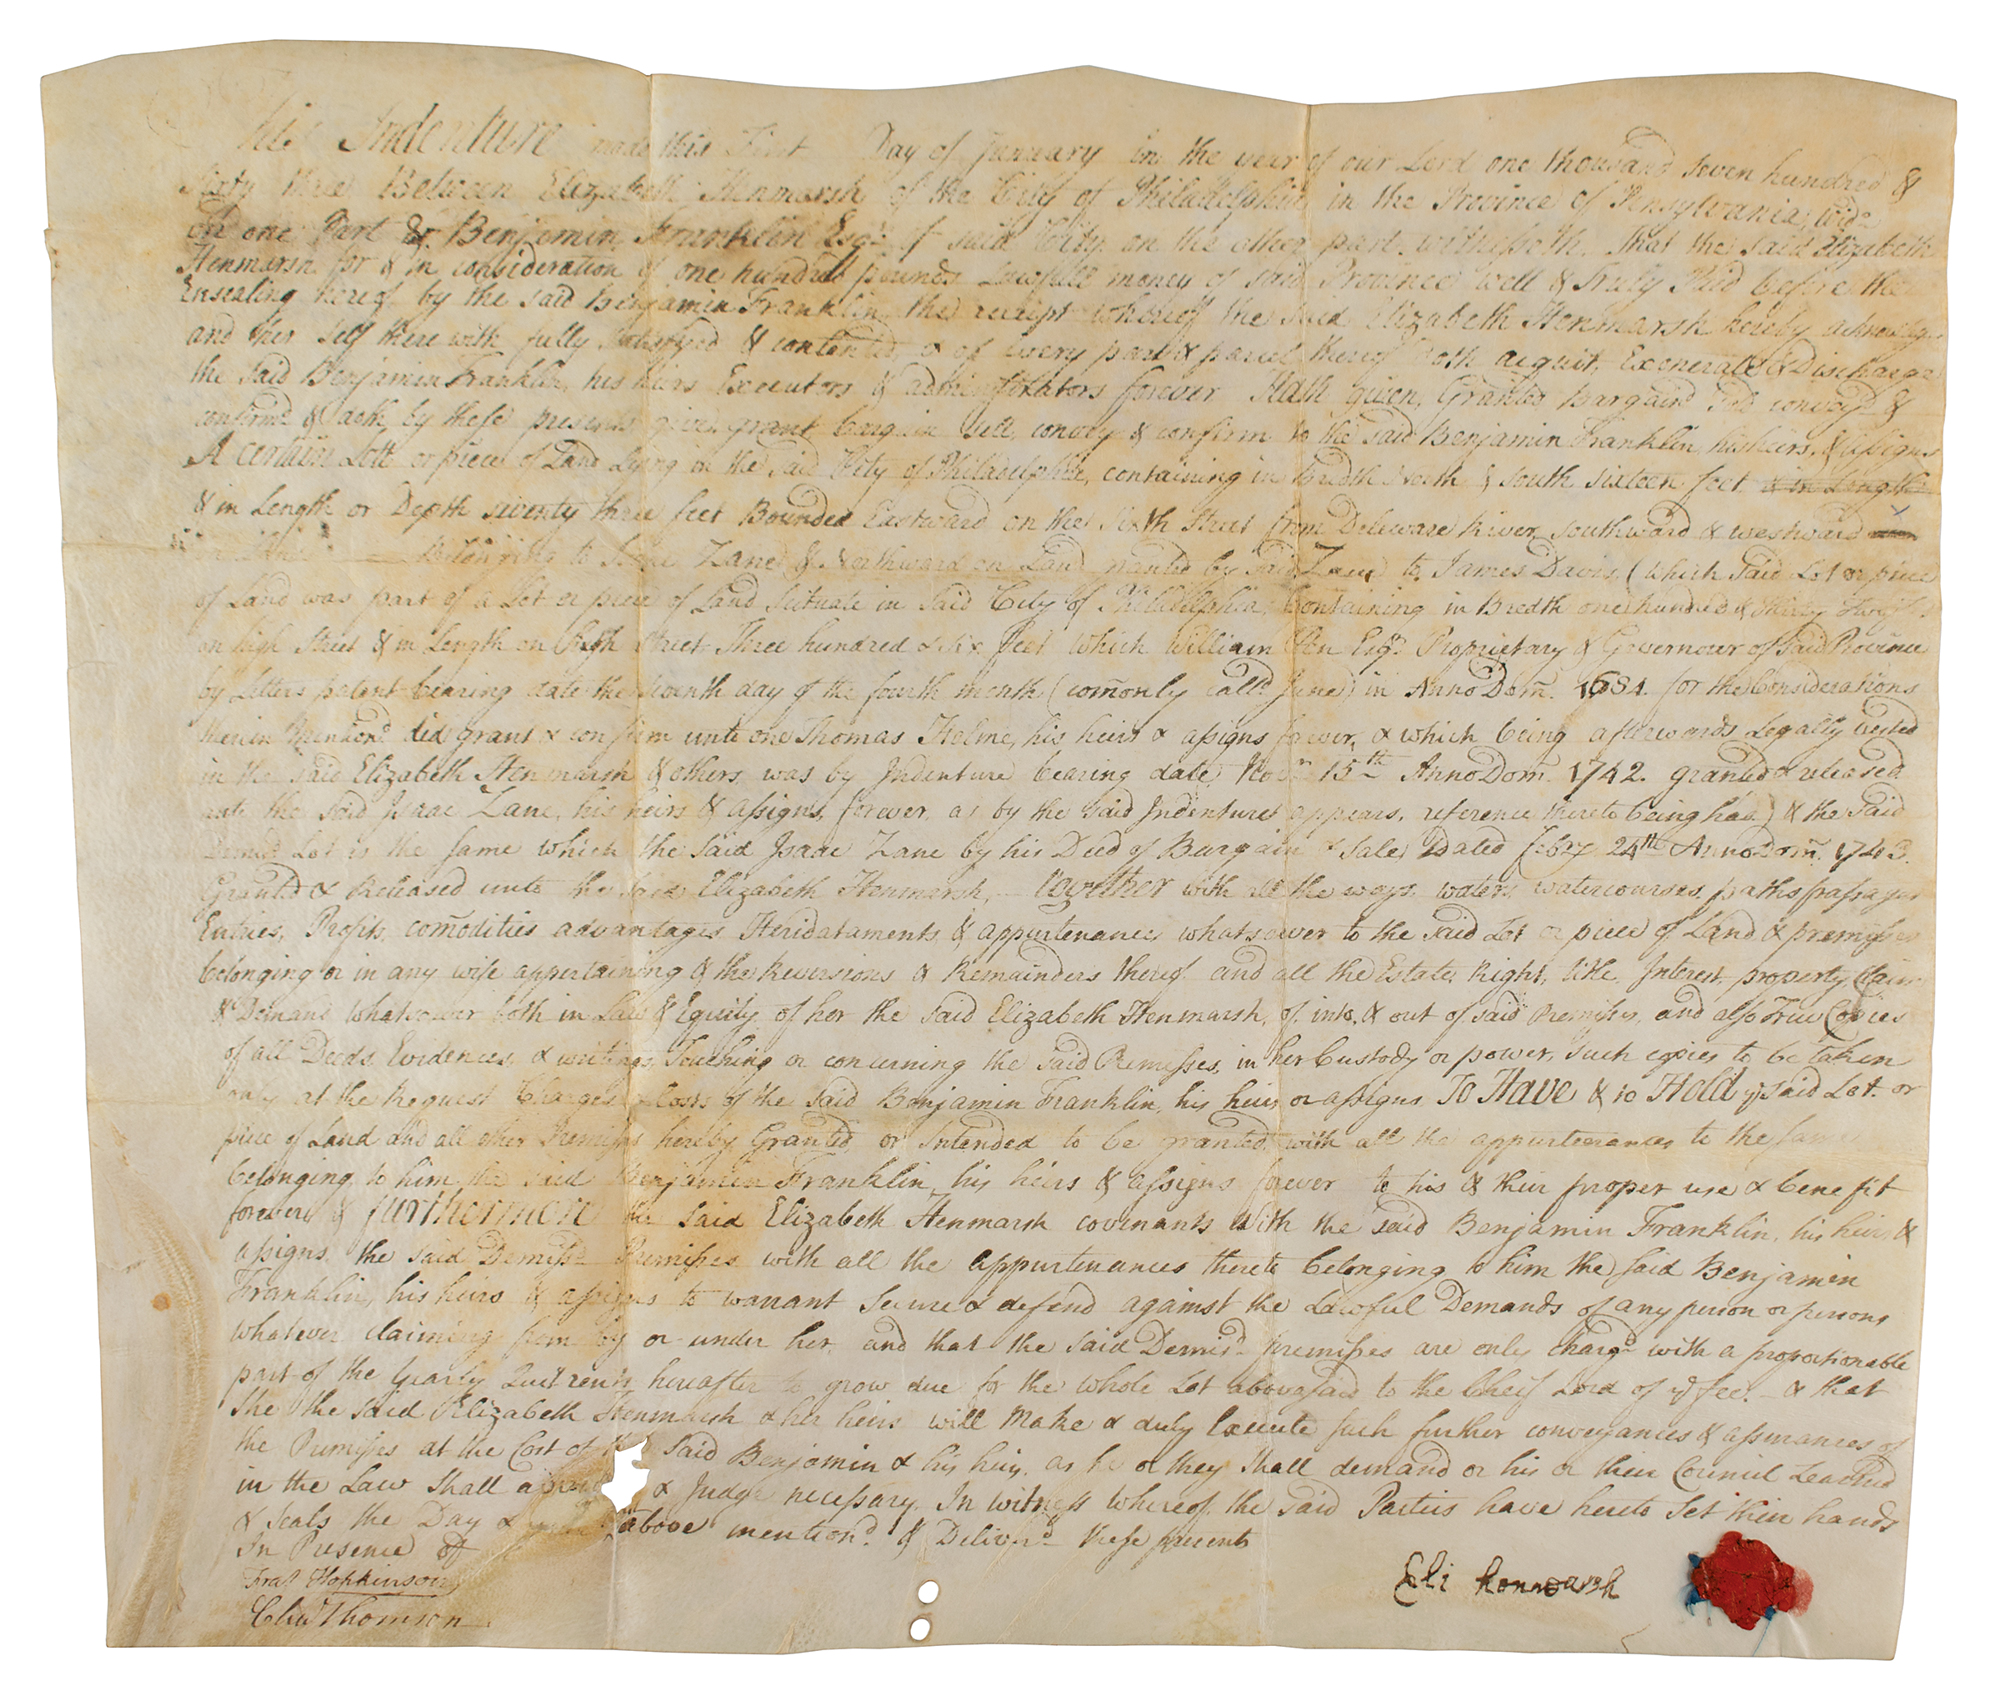 This Indenture made this First Day of January in the year of our Lord one thousand seven hundred &
Sixty three Between Elizabeth Henmarsh of the City of Philadelphia in the Province of Pensylvania, Widw
on one Part & Benjamin Franklin Esqr. of said City on the other part. witnesseth. That the said Elizabeth
Henmarsh for & in consideration of one hundred pounds Lawfull money of said Province well & Truly Paid before the
Ensealing hereof by the said Benjamin Franklin, the receipt whereoff the said Elizabeth Henmarsh hereby
and her self there with fully Satisfyed & contented, & of every part & parcel thereof doth acquit, Exonerate & Discharge
the said Benjamin Franklin, his heirs Executors & administrators forever Hath given, Granted Bargaind Sold convey'd &
confirmd & doth by these presents give grant bargain sell, convey & confirm to the said Benjamin Franklin, his heirs, & assigns
A certain Lott or piece of Land Lying in the said City of Philadelphia, containing in Bredth North & South sixteen feet & in Length
& in Length or Depth seventy three feet Bounded Eastward on the Sixth Street from Deleware River, Southward & westward
Belonging to Isaac Zane & Northward on Land granted by said Zane to James Davis, (which said Lot or piece
of Land was part of a Lot or piece of Land Scituate in said City of Philadelphia, Containing in Bredth one hundred & thirty Two feet
on high Street & in Length on Street Three hundred & six feet which William Pen Esqr. Proprietary & Governour of said Province
by Letters patent bearing date the seventh day of the fourth month (comonly calld June) in Anno Dom. 1684. for the Considerations
therein Mentiond. did grant & confirm unto one Thomas Holme, his heirs & assigns forever, & which being afterwards Legally vested
in the said Elizabeth Henmarsh & others, was by Indenture bearing date Novr. 15th. Anno Dom. 1742. granted & released
unto the said Isaac Zane, his heirs & assigns, forever, as by the said Indentures appears, reference thereto being had) & the said
Demisd Lot is the same which the said Isaac Zane by his Deed of Bargain & Sale, Dated Febry 24th Anno Dom. 1743.
Granted & Released unto the said Elizabeth Henmarsh, Together with all the ways. waters, watercourses, paths, passages
Entries, Profits, comodities advantages, Heridataments, & appurtenances whatsoever to the said Lot or piece of Land & premisses
belonging or in any wise appertaining & the Reversions & Remainders thereof and all the Estate, Right, title, Interest, property, Claim
& Demand whatsoever both in Law & Equity, of her the said Elizabeth Henmarsh, of, into, & out of said Premisses, and also True Copies
of all Deeds, Evidences, & writings, Touching or concerning the said Premisses, in her Custody or power, such copies to be taken
only at the Request Charges & Costs of the said Benjamin Franklin, his heirs or assigns To Have & to Hold ye said Lot. or
piece of Land and all other Premisses hereby Granted, or Intended to be granted, with all the appurtenances to the same
belonging, to him the said Benjamin Franklin, his heirs & assigns forever to his & their proper use & benefit
forever, & furthermore the said Elizabeth Henmarsh covenants with the said Benjamin Franklin, his heirs, &
assigns, the said Demisd Premisses with all the appurtenances thereto belonging to him the said Benjamin
Franklin, his heirs & assigns to warrant secure & defend against the Lawful Demands of any person or persons
whatever claiming from by or under her, and that the said Demisd. premisses are only Chargd. with a proportionable
part of the yearly Quit rents hereafter to grow due for the whole Lot abovesaid to the Cheif Lord of ye fee. — & that
she the said Elizabeth Henmarsh & her heirs will Make & duly Execute such further conveyances & assurances of
the Premisses at the Cost of the said Benjamin & his heirs, as he or they shall demand or his or their Council Learned
in the Law shall & Judge necessary. In witness whereof, the said Parties have hereto set their hands
& Seals the Day & above mentiond. & Deliverd. these presents
In Presence of
Fras. Hopkinson
Chas Thomson
Eli Henmarsh